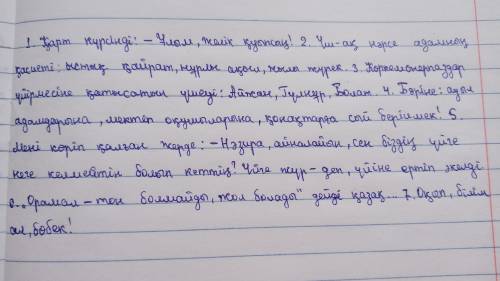 1. Қарт күрсінді: – Ұлом, желік қуыпсаң! 2. Үш-ақ нәрсе адамның
қасиеті: ыстық қайрат, нұрлы ақыл, жылы жүрек. 3. Көркемөнерпаздар
үйірмесіне қатысатын үшеуі: Айжан, Гүлнұр, Болат. 4. Бәріне: ауыл
адамдарына, мектеп оқушыларына, қонақтарға сый берілмек! 5.
Мені көріп қалған жерде: – Нәзира, айналайын, сен біздің үйге
неге келмейтін болып кеттің? Үйге жүр – деп, үйіне ертіп әкелді
6. „Орамал – тон болмайды, жол болады" дейді қазақ... 7. Оқып, білім
ал, бөбек!